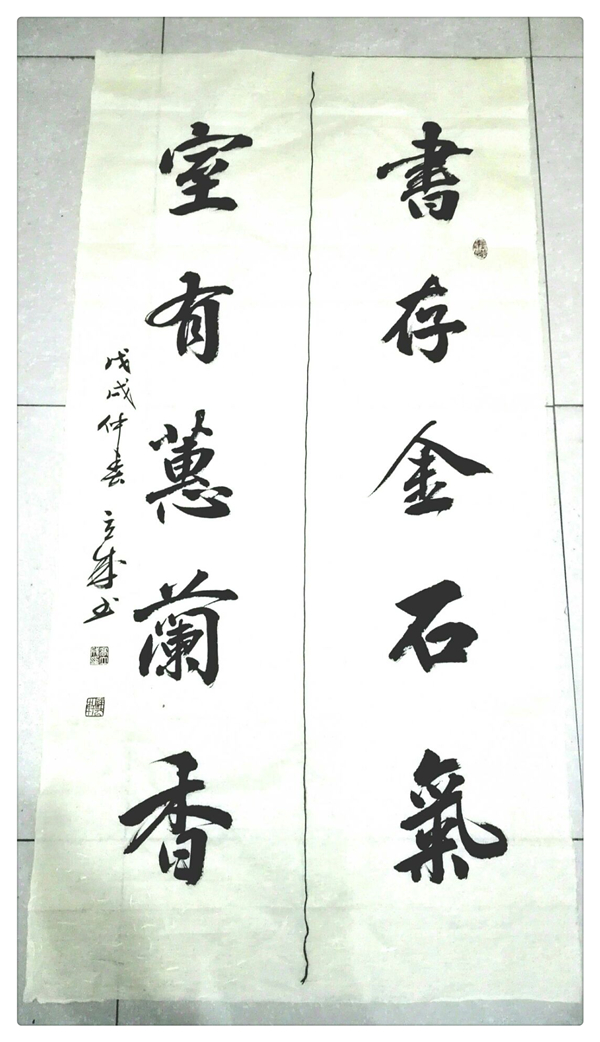 書存金石氣
室有蕙蘭香
戊戌仲春 立成书